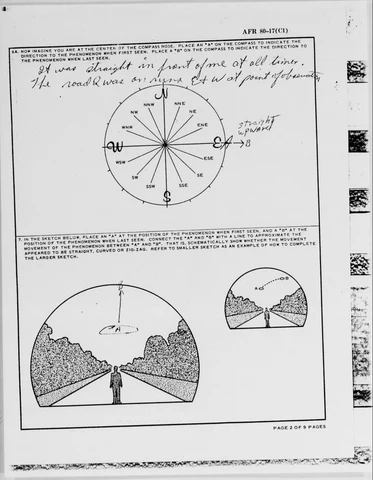 AFR 80-17(C1)
6A. NOW IMAGINE YOU ARE AT THE CENTER OF THE COMPASS ROSE. PLACE AN "A" ON THE COMPASS TO INDICATE THE
DIRECTION TO THE PHENOMENON WHEN FIRST SEEN. PLACE A "B" ON THE COMPASS TO INDICATE THE DIRECTION TO
THE PHENOMENON WHEN LAST SEEN.
It was straight in front of me at all times.
The road I was on runs E + W at point of observation
N
NNW NNE
NW NE
WNW ENE
straight
upward
W E A B
WSW ESE
SW SE
SSW SSE
S
7. IN THE SKETCH BELOW, PLACE AN "A" AT THE POSITION OF THE PHENOMENON WHEN FIRST SEEN, AND A "B" AT THE
POSITION OF THE PHENOMENON WHEN LAST SEEN. CONNECT THE "A" AND "B" WITH A LINE TO APPROXIMATE THE
MOVEMENT OF THE PHENOMENON BETWEEN "A" AND "B". THAT IS, SCHEMATICALLY SHOW WHETHER THE MOVEMENT
APPEARED TO BE STRAIGHT, CURVED OR ZIG-ZAG. REFER TO SMALLER SKETCH AS AN EXAMPLE OF HOW TO COMPLETE
THE LARGER SKETCH.
A B
A
PAGE 2 OF 9 PAGES